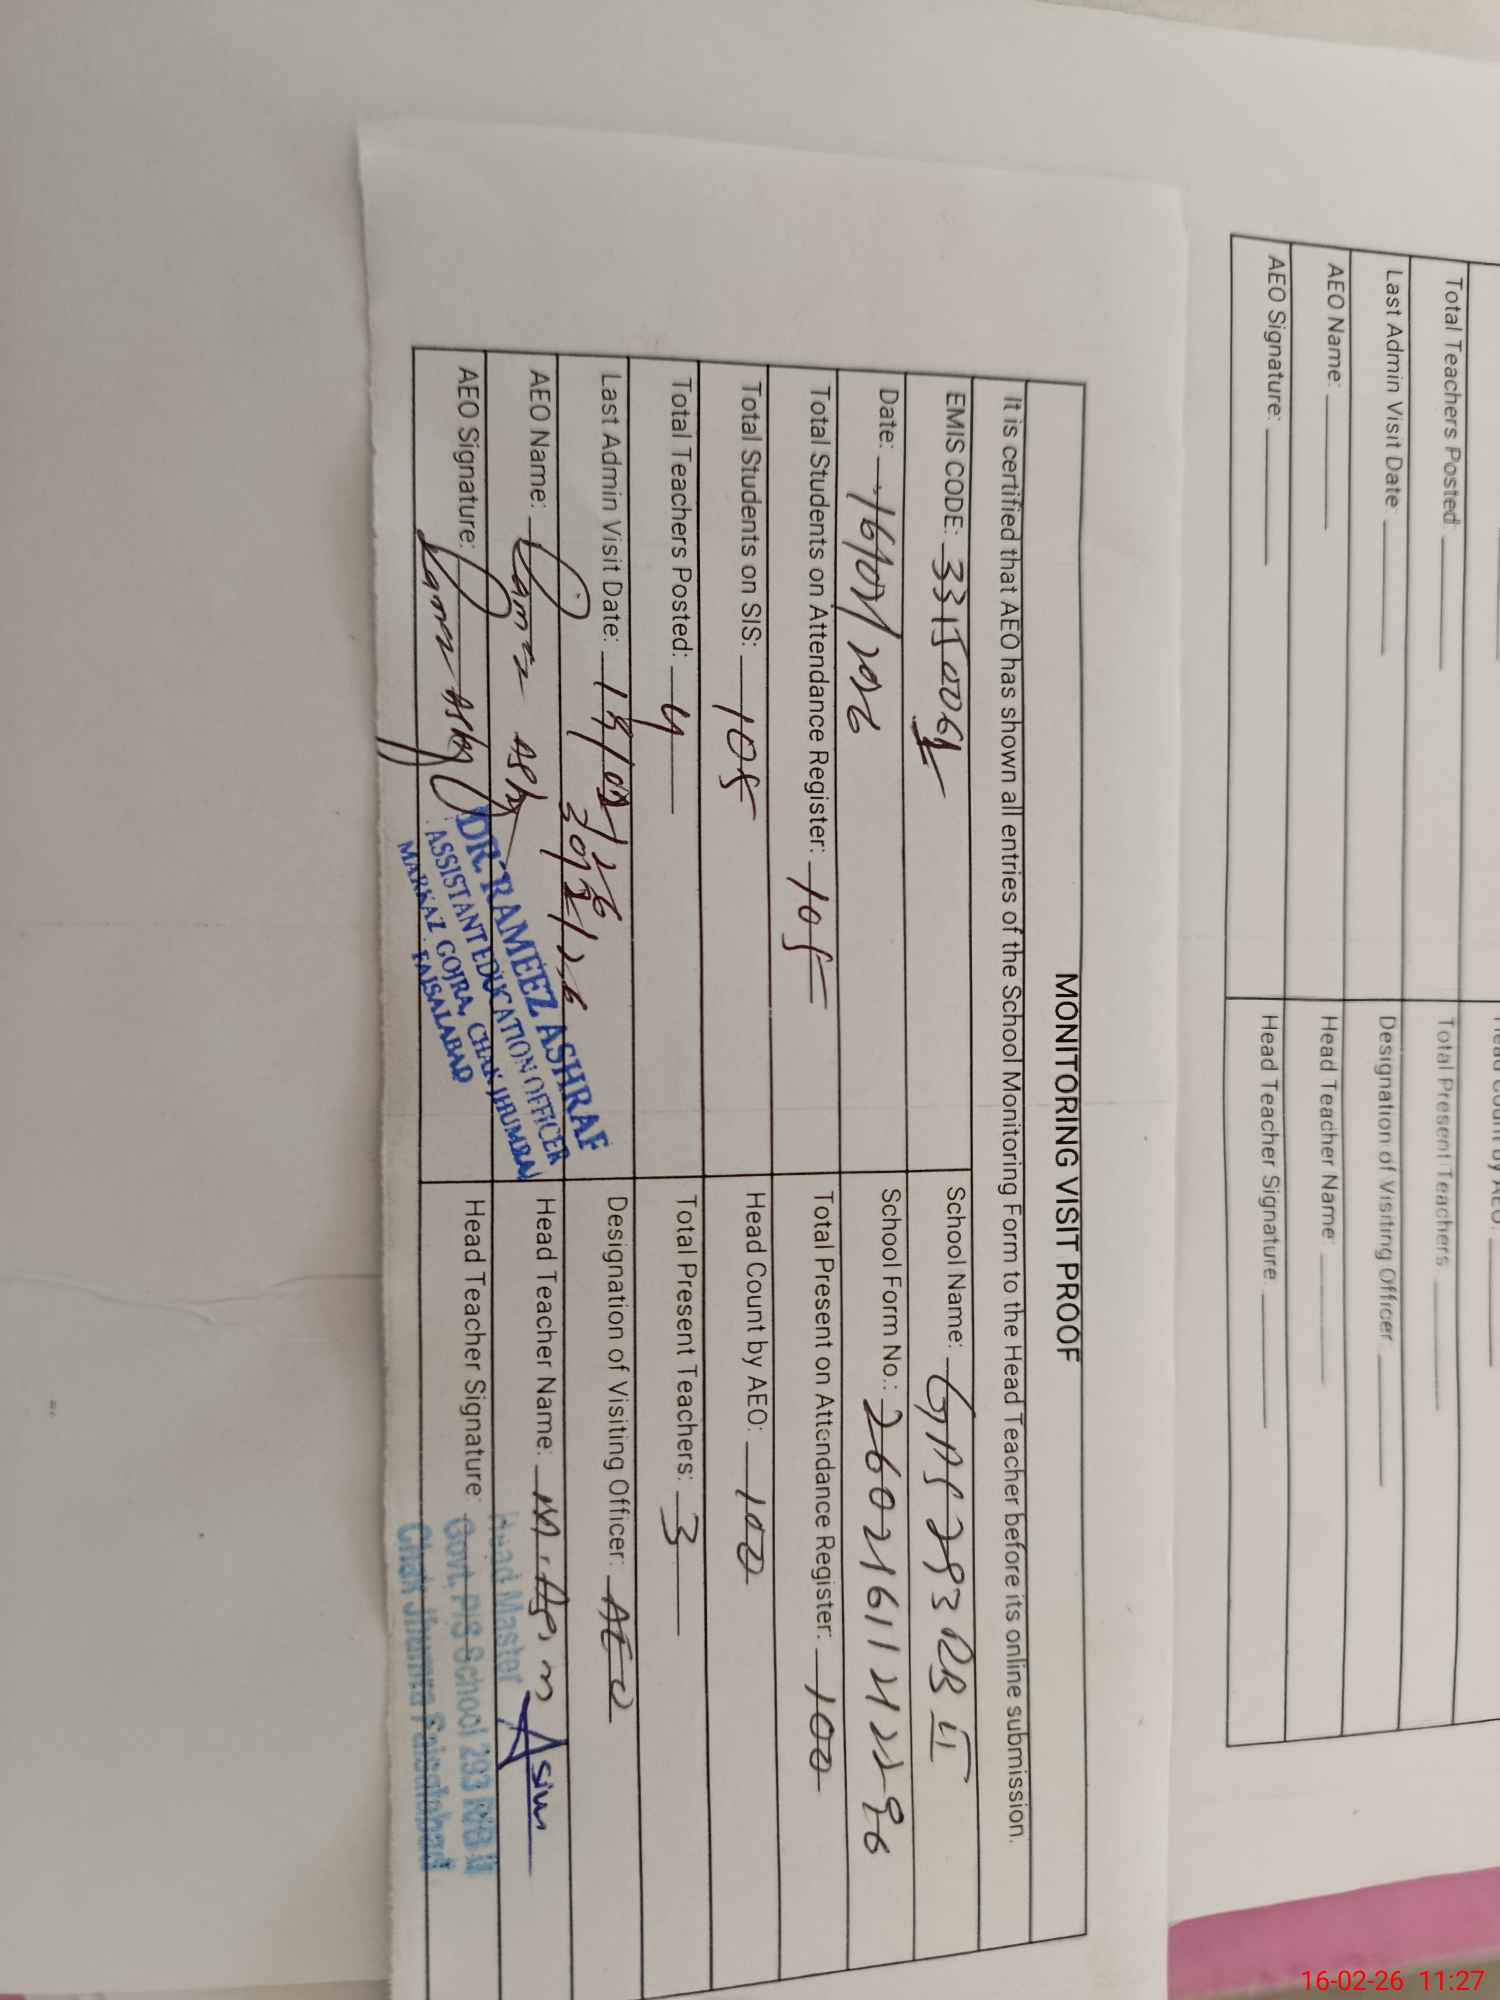 Total Teachers Posted: Total Present Teachers
Last Admin Visit Date: Designation of Visiting Officer
AEO Name: Head Teacher Name:
AEO Signature: Head Teacher Signature:
MONITORING VISIT PROOF
It is certified that AEO has shown all entries of the School Monitoring Form to the Head Teacher before its online submission.
EMIS CODE: School Name: 293 RB II
Date: 16/02/2026 School Form No.:
Total Students on Attendance Register: 105 Total Present on Attendance Register: 100
Total Students on SIS: 105 Head Count by AEO: 100
Total Teachers Posted: 4 Total Present Teachers: 3
Last Admin Visit Date: Designation of Visiting Officer: AEO
AEO Name: Rameez Head Teacher Name: M. Asim
AEO Signature: Rameez Head Teacher Signature: Asim
DR. RAMEEZ ASHRAF
ASSISTANT EDUCATION OFFICER
MARKAZ GOJRA, CHAK JHUMRA
FAISALABAD
Head Master
Govt. P/S School 293 R/B II
Chak Jhumra Faisalabad
16-02-26 11:27